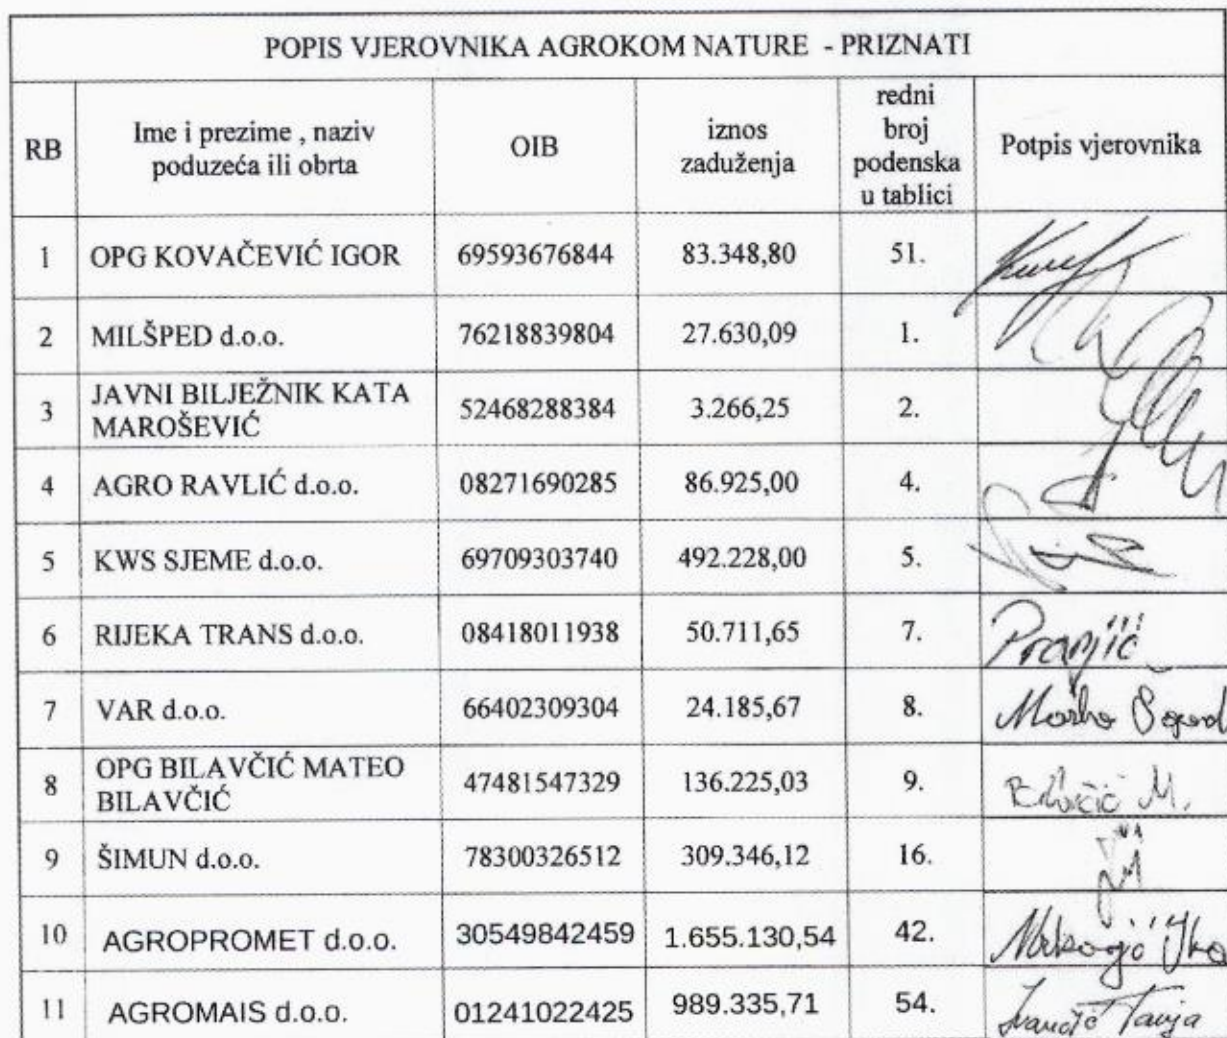 POPIS VJEROVNIKA AGROKOM NATURE - PRIZNATI
RB Ime i prezime , naziv poduzeća ili obrta OIB iznos zaduženja redni broj podenska u tablici Potpis vjerovnika
1 OPG KOVAČEVIĆ IGOR 69593676844 83.348,80 51.
2 MILŠPED d.o.o. 76218839804 27.630,09 1.
3 JAVNI BILJEŽNIK KATA MAROŠEVIĆ 52468288384 3.266,25 2.
4 AGRO RAVLIĆ d.o.o. 08271690285 86.925,00 4.
5 KWS SJEME d.o.o. 69709303740 492.228,00 5.
6 RIJEKA TRANS d.o.o. 08418011938 50.711,65 7. Pranjić
7 VAR d.o.o. 66402309304 24.185,67 8. Marko
8 OPG BILAVČIĆ MATEO BILAVČIĆ 47481547329 136.225,03 9. Bilavčić M.
9 ŠIMUN d.o.o. 78300326512 309.346,12 16.
10 AGROPROMET d.o.o. 30549842459 1.655.130,54 42.
11 AGROMAIS d.o.o. 01241022425 989.335,71 54. Tanja